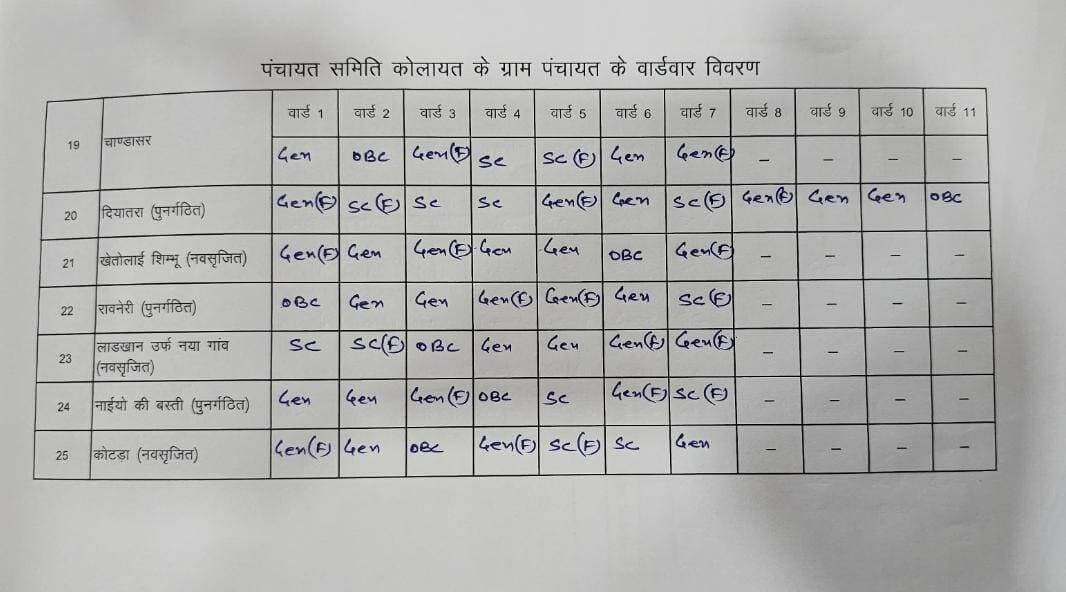 पंचायत समिति कोलायत के ग्राम पंचायत के वार्डवार विवरण
वार्ड 1 वार्ड 2 वार्ड 3 वार्ड 4 वार्ड 5 वार्ड 6 वार्ड 7 वार्ड 8 वार्ड 9 वार्ड 10 वार्ड 11
19 चाण्डासर Gen OBC Gen(F) SC SC(F) Gen Gen(F) – – – –
20 दियातरा (पुनर्गठित) Gen(F) SC(F) SC SC Gen(F) Gen SC(F) Gen(F) Gen Gen OBC
21 खेतोलाई शिम्भू (नवसृजित) Gen(F) Gen Gen(F) Gen Gen OBC Gen(F) – – – –
22 रावनेरी (पुनर्गठित) OBC Gen Gen Gen(F) Gen(F) Gen SC(F) – – – –
23 लाडखान उर्फ नया गांव
(नवसृजित) SC SC(F) OBC Gen Gen Gen(F) Gen(F) – – – –
24 नाईयो की बस्ती (पुनर्गठित) Gen Gen Gen(F) OBC SC Gen(F) SC(F) – – – –
25 कोटड़ा (नवसृजित) Gen(F) Gen OBC Gen(F) SC(F) SC Gen – – – –